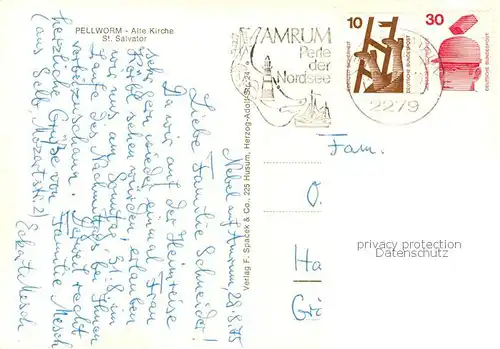 PELLWORM - Alte Kirche
St. Salvator
AMRUM
Perle
der
Nordsee
10
30
DEUTSCHE BUNDESPOST
DEUTSCHE BUNDESPOST
2279
Verlag F. Spacek & Co., 225 Husum, Herzog-Adolf-Str. 24
Nebel auf Amrum, 28.8.75
Liebe Familie Schneider!
Da wir auf der Heimreise
sehr gern wieder einmal Frau
sehen würden, erlauben
wir uns am Sonntag, 31.8. im
Laufe des Nachmittags bei Ihnen
vorbeizuschauen. Derweil recht
herzliche Grüße von Familie Mesch
(aus Selb, Mozartstr. 2)
Fam.
privacy protection
Datenschutz